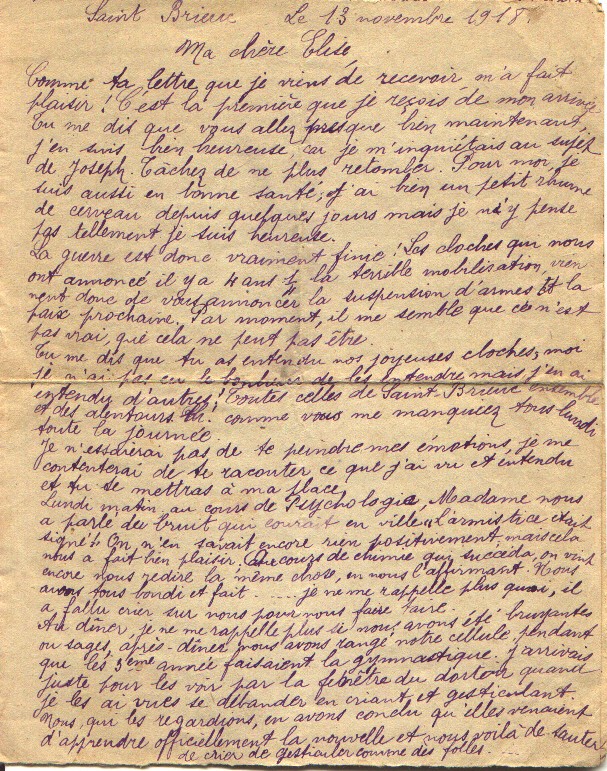 Saint Brieuc Le 13 novembre 1918.
Ma chère Elise,
Comme ta lettre que je viens de recevoir m'a fait
plaisir ! C'est la première que je reçois de mon arrivée
Tu me dis que vous allez presque bien maintenant,
j'en suis bien heureuse, car je m'inquiétais au sujet
de Joseph. Tâchez de ne plus retomber. Pour moi, je
suis aussi en bonne santé ; j'ai bien un petit rhume
de cerveau depuis quelques jours mais je n'y pense
pas tellement je suis heureuse.
La guerre est donc vraiment finie ! Les cloches qui nous
ont annoncé il y a 4 ans ½ la terrible mobilisation, vien
nent donc de vous annoncer la suspension d'armes et la
paix prochaine. Par moment, il me semble que ce n'est
pas vrai, que cela ne peut pas être.
Tu me dis que tu as entendu nos joyeuses cloches, moi
je n'ai pas eu le bonheur de les entendre mais j'en ai
entendu d'autres ! Toutes celles de Saint-Brieuc ensemble
et des alentours. Ah ! comme vous me manquiez tous lundi
toute la journée.
Je n'essaierai pas de te peindre mes émotions, je me
contenterai de te raconter ce que j'ai vu et entendu
et tu te mettras à ma place.
Lundi matin, au cours de Psychologie, Madame nous
a parlé du bruit qui courait en ville "L'armistice était
signé". On n'en savait encore rien positivement, mais cela
nous a fait bien plaisir. Au cours de chimie qui succéda, on vint
encore nous redire la même chose, en nous l'affirmant. Nous
avons tous bondi et fait ..... je ne me rappelle plus quoi, il
a fallu crier sur nous pour nous faire taire.
Au dîner, je ne me rappelle plus si nous avons été bruyantes
ou sages, après-dîner nous avons rangé notre cellule, pendant
que les 3ème année faisaient la gymnastique. J'arrivais
juste pour les voir par la fenêtre du dortoir quand
je les ai vues se débander en criant et gesticulant.
Nous, qui les regardions, en avons conclu qu'elles venaient
d'apprendre officiellement la nouvelle et nous voilà de sauter
de crier de gesticuler comme des folles.